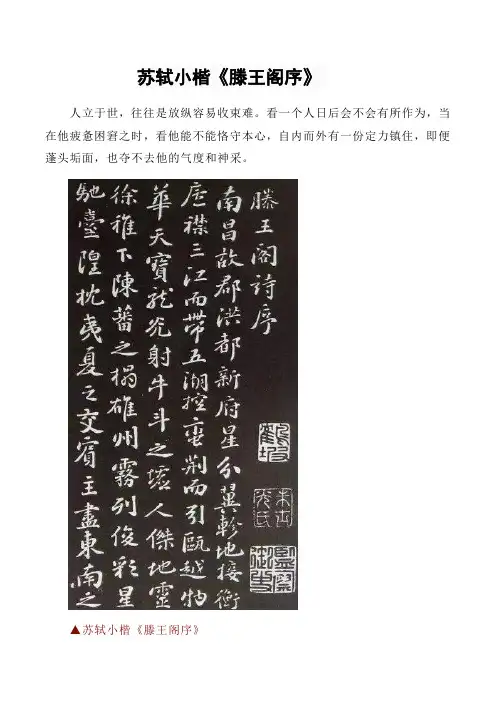 苏轼小楷《滕王阁序》
人立于世，往往是放纵容易收束难。看一个人日后会不会有所作为，当
在他疲惫困窘之时，看他能不能恪守本心，自内而外有一份定力镇住，即便
蓬头垢面，也夺不去他的气度和神采。
滕王閣詩序
南昌故郡洪都新府星分翼軫地接衡
廬襟三江而帶五湖控蠻荊而引甌越物
華天寶龍光射牛斗之墟人傑地靈
徐稚下陳蕃之榻雄州霧列俊彩星
馳臺隍枕夷夏之交賓主盡東南之
▲苏轼小楷《滕王阁序》